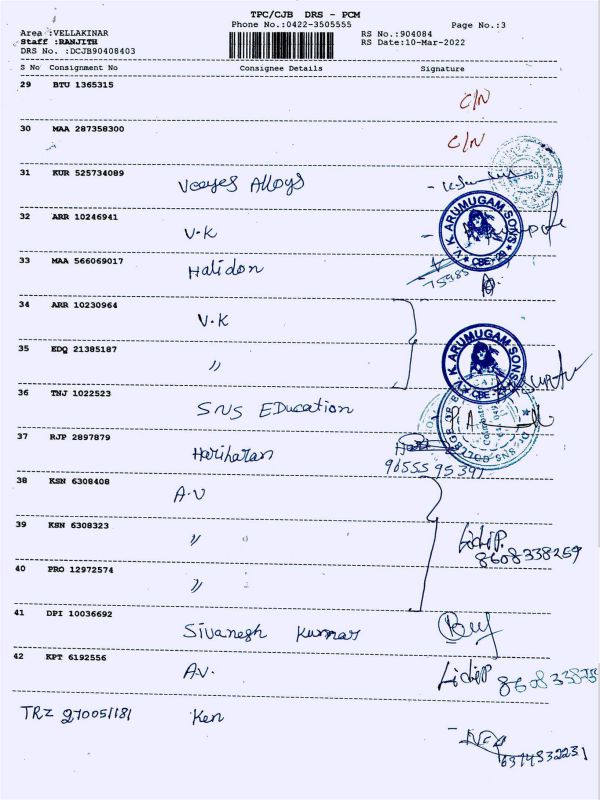 TPC/CJB DRS - PCM
Phone No.:0422-3505555
Page No.:3
Area :VELLAKINAR
RS No.:904084
Staff :RANJITH
RS Date:10-Mar-2022
DRS No. :DCJB90408403
S No Consignment No Consignee Details Signature
29 BTU 1365315 C/N
30 MAA 287358300 C/N
31 KUR 525734089 Veeyes Alloys
32 ARR 10246941 V.K
V.K ARUMUGAM SONS
CBE-29
33 MAA 566069017 Halidon
75985
34 ARR 10230964 V.K
35 EDQ 21385187 〃
V.K ARUMUGAM SONS
36 TNJ 1022523 SNS EDucation
Dr. SNS COLLEGE OF
37 RJP 2897879 Hariharan Hari
96555 95397
38 KSN 6308408 A.V
39 KSN 6308323 〃
8608338259
40 PRO 12972574 〃
41 DPI 10036692 Sivanesh Kumar
42 KPT 6192556 A.V.
TRZ 270051181 Ken
6374332231